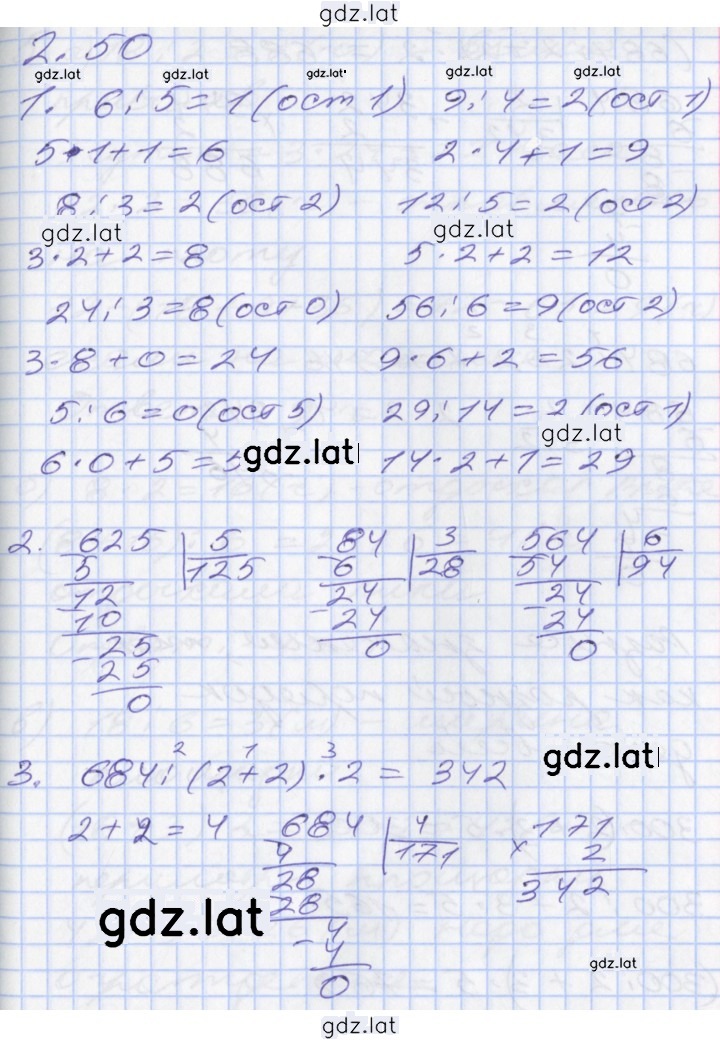 gdz.lat
2.50
gdz.lat gdz.lat gdz.lat gdz.lat gdz.lat
1. 6:5=1(ост 1) 9:4=2(ост 1)
5·1+1=6 2·4+1=9
8:3=2(ост 2) 12:5=2(ост 2)
gdz.lat gdz.lat
3·2+2=8 5·2+2=12
24:3=8(ост 0) 56:6=9(ост 2)
3·8+0=24 9·6+2=56
5:6=0(ост 5) 29:14=2(ост 1)
gdz.lat
6·0+5=5 gdz.lat 14·2+1=29
2. 625 5 84 3 564 6
5 125 6 28 54 94
-12 -24 -24
10 24 24
-25 0 0
25
0
gdz.lat
2 1 3
3. 684:(2+2)·2= 342
2+2=4 684 4 171
4 171 × 2
28 342
28
gdz.lat
-4
4
gdz.lat
0
gdz.lat